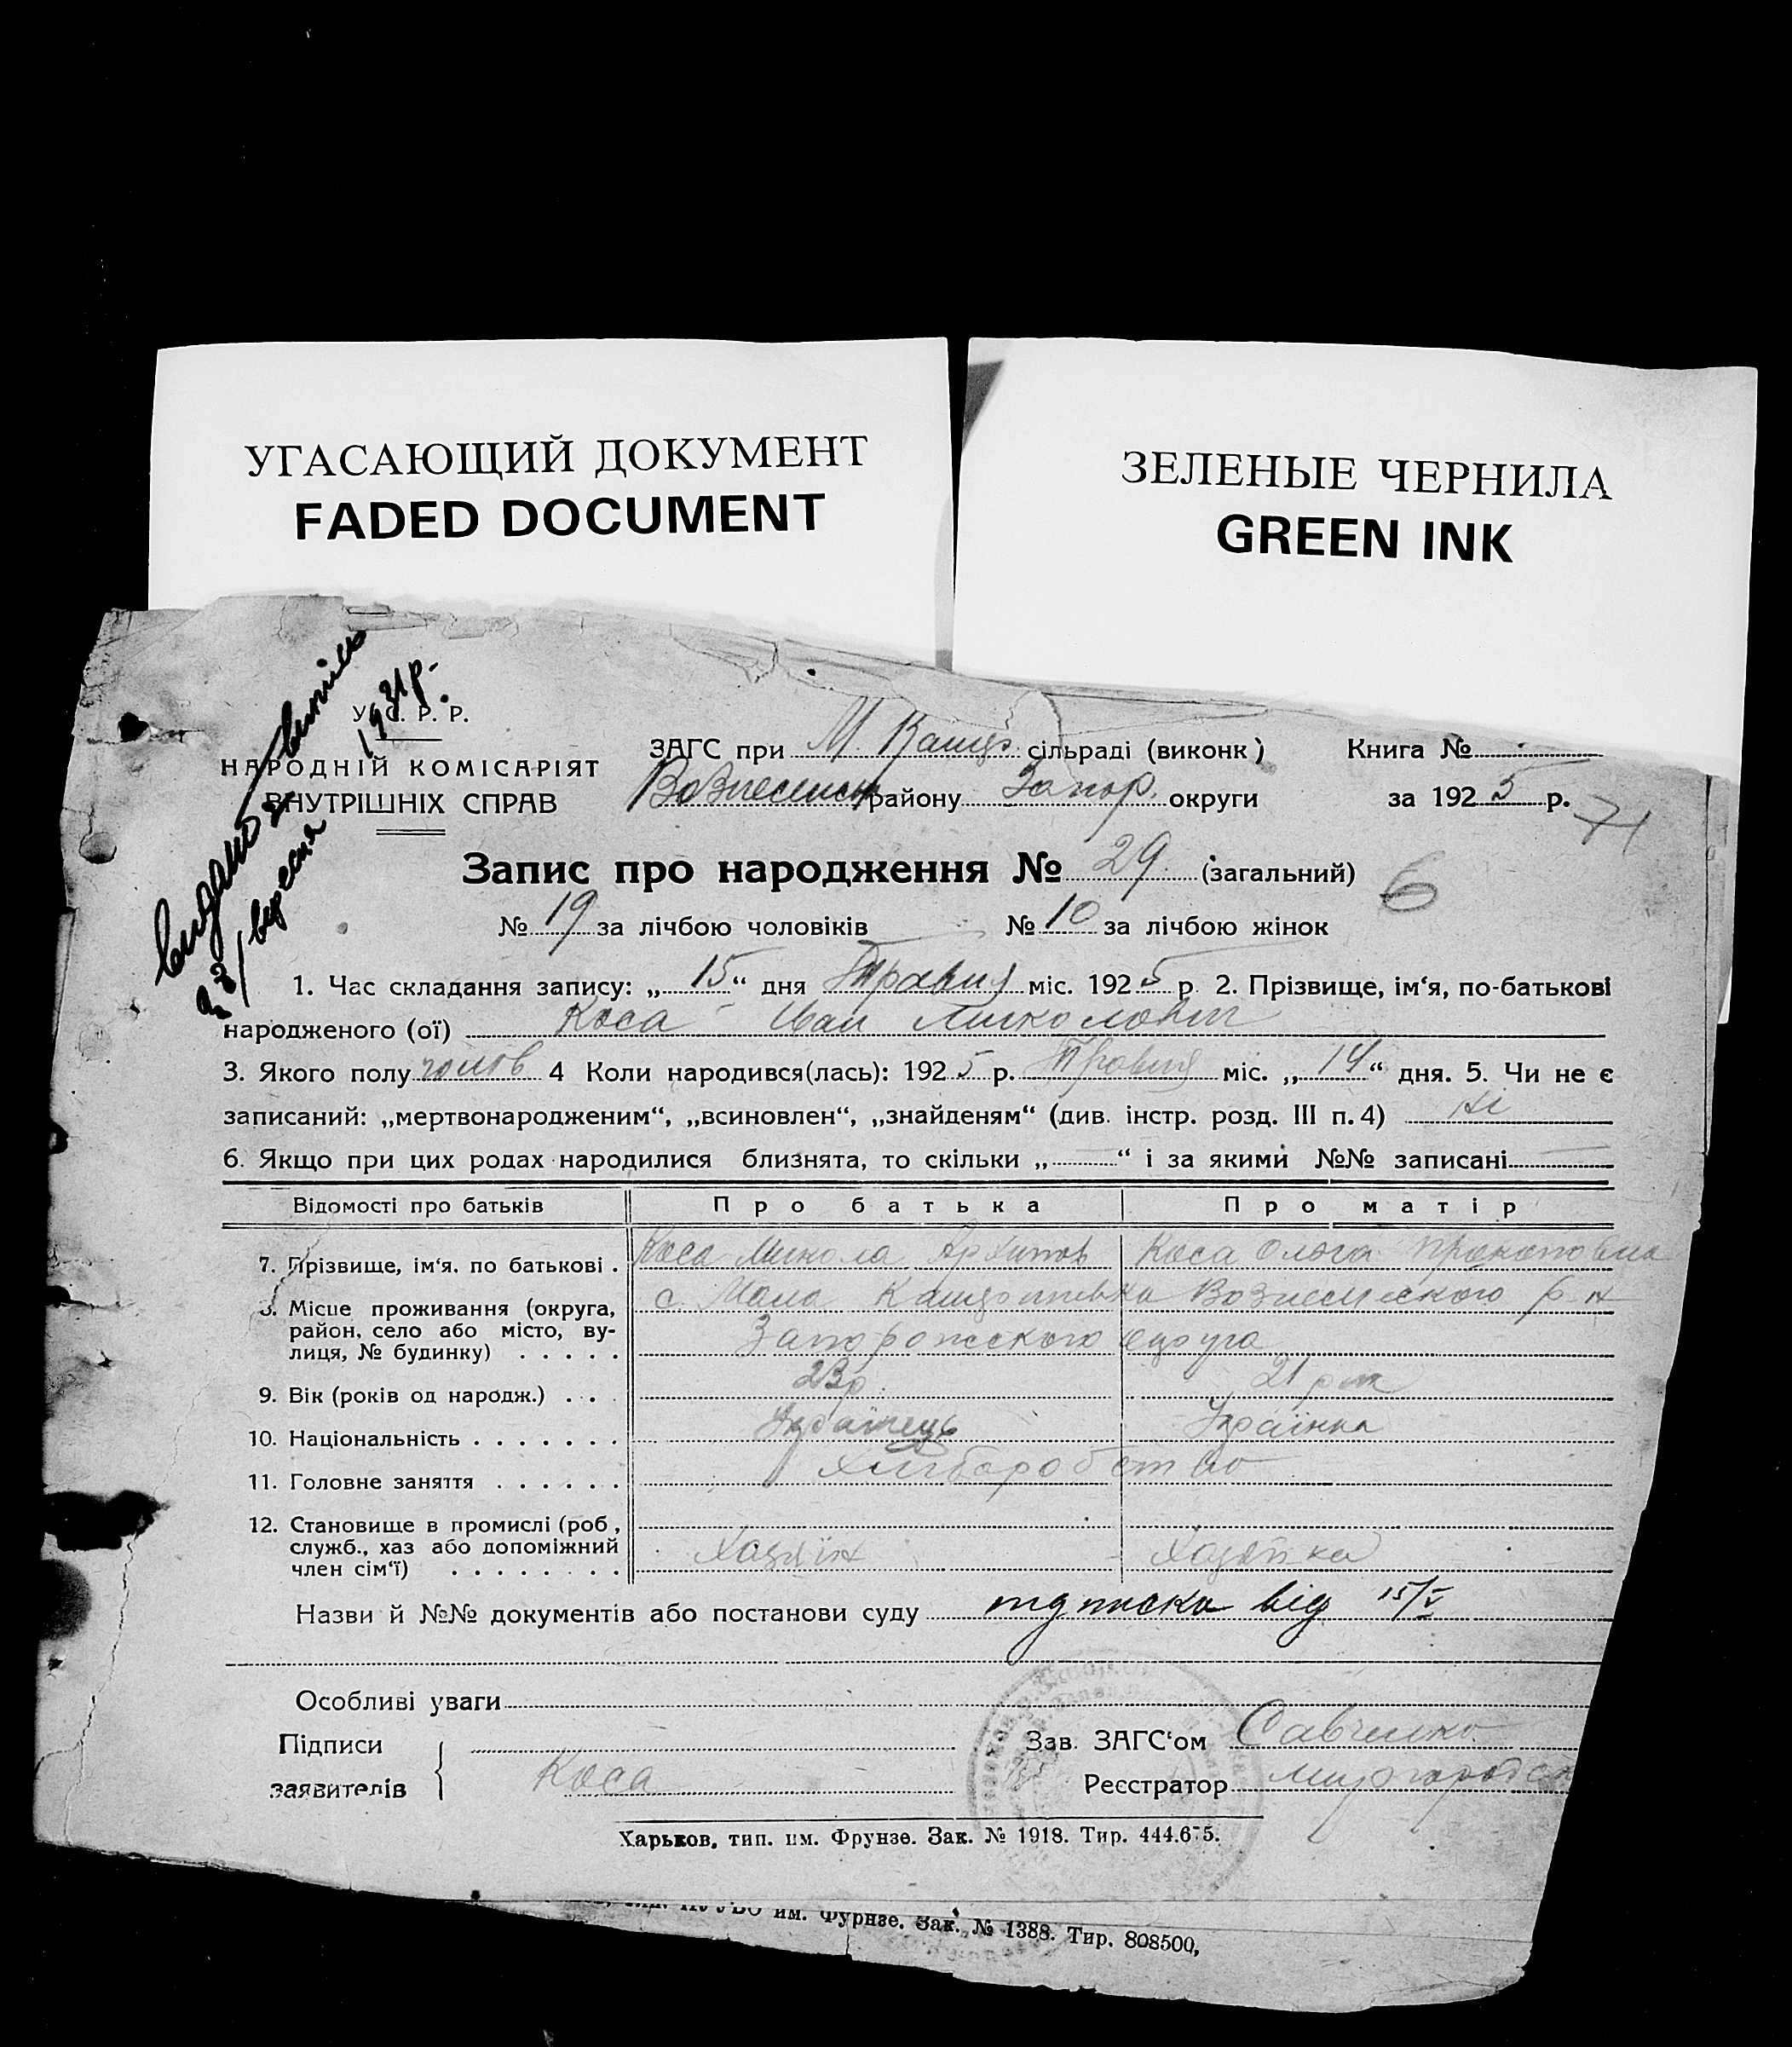 УГАСАЮЩИЙ ДОКУМЕНТ
FADED DOCUMENT
ЗЕЛЕНЫЕ ЧЕРНИЛА
GREEN INK
видано випись
23/вересня 1931р.
У. С. Р. Р.
НАРОДНІЙ КОМІСАРІЯТ
ВНУТРІШНІХ СПРАВ
ЗАГС при М. Кащр. сільраді (виконк)
Вознесенськ району Запор. округи
Книга №
за 1925 р.
71
Запис про народження № 29. (загальний)
6
№ 19 за лічбою чоловіків № 10 за лічбою жінок
1. Час складання запису: „15“ дня Травня міс. 1925 р. 2. Прізвище, ім‘я, по-батькові
народженого (ої) Коса Іван Миколович
3. Якого полу чолов 4 Коли народився(лась): 1925 р. Травня міс. „14“ дня. 5. Чи не є
записаний: „мертвонародженим“, „всиновлен“, „знайденям“ (див. інстр. розд. III п. 4) ні
6. Якщо при цих родах народилися близнята, то скільки „—“ і за якими №№ записані —
Відомості про батьків Про батька Про матір
7. Прізвище, ім‘я. по батькові . Коса Микола Архипов Коса Ольга Прокоповна
8. Місце проживання (округа,
район, село або місто, ву-
лиця, № будинку) . . . . .
с. Мала Вознесенского р-н
Запорожского округа
9. Вік (років од народж.) . . . 23 р. 21 рік
10. Національність . . . . . . . Українець Українка
11. Головне заняття . . . . . . Хліборобство
12. Становище в промислі (роб,
служб., хаз або допоміжний
член сім‘ї) . . . . . . . .
Хазяїн Хазяйка
Назви й №№ документів або постанови суду підписка від 15/V
Особливі уваги
Підписи
заявителів
Коса
Зав. ЗАГС‘ом Савченко
Реєстратор Миргородск
Харьков, тип. им. Фрунзе. Зак. № 1918. Тир. 444.675.
им. Фурнзе. Зак. № 1388. Тир. 808500,